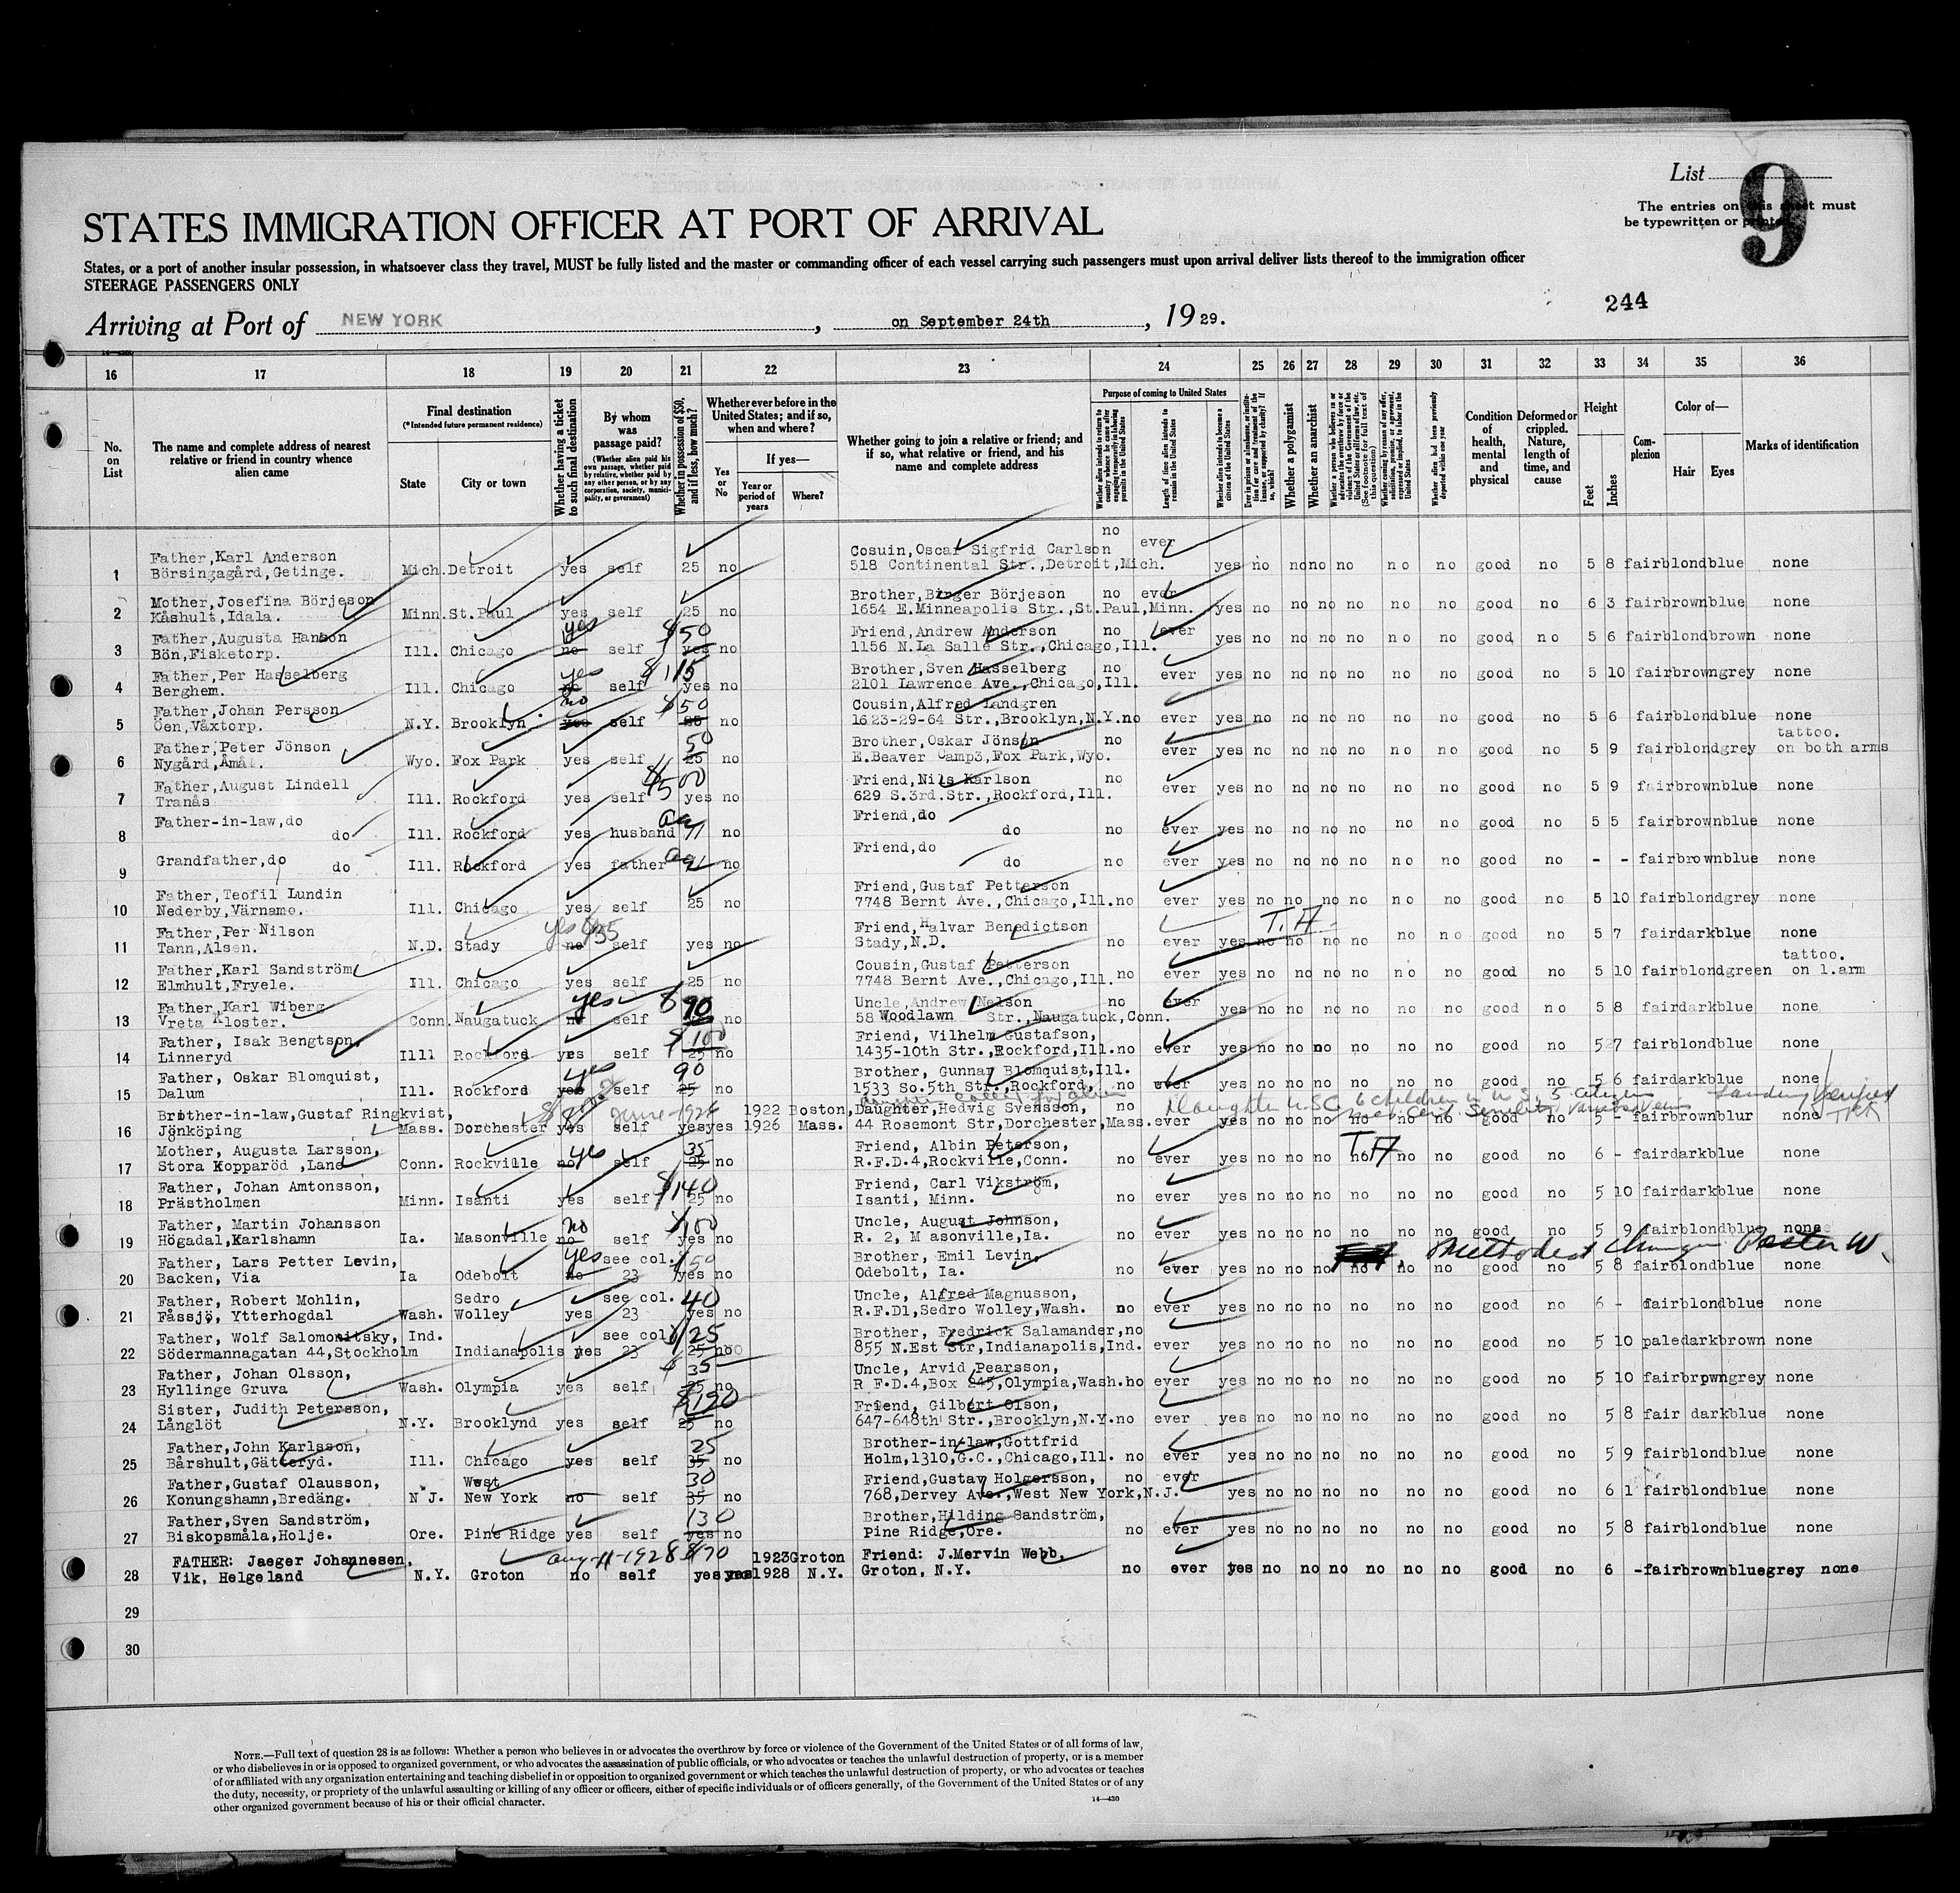 List
9
The entries on this sheet must
be typewritten or printed.
STATES IMMIGRATION OFFICER AT PORT OF ARRIVAL
States, or a port of another insular possession, in whatsoever class they travel, MUST be fully listed and the master or commanding officer of each vessel carrying such passengers must upon arrival deliver lists thereof to the immigration officer
STEERAGE PASSENGERS ONLY
244
Arriving at Port of NEW YORK, on September 24th, 1929.
16 17 18 19 20 21 22 23 24 25 26 27 28 29 30 31 32 33 34 35 36
No. on List
The name and complete address of nearest relative or friend in country whence alien came
Final destination
(*Intended future permanent residence)
State
City or town
Whether having a ticket to such final destination
By whom was passage paid?
(Whether alien paid his own passage, whether paid by relative, whether paid by any other person, or by any corporation, society, municipality, or government)
Whether in possession of $50, and if less, how much?
Whether ever before in the United States; and if so, when and where?
Yes or No
If yes—
Year or period of years
Where?
Whether going to join a relative or friend; and if so, what relative or friend, and his name and complete address
Purpose of coming to United States
Whether alien intends to return to country whence he came after engaging temporarily in laboring pursuits in the United States
Length of time alien intends to remain in the United States
Whether alien intends to become a citizen of the United States
Whether a polygamist
Whether an anarchist
Condition of health, mental and physical
Deformed or crippled. Nature, length of time, and cause
Height
Feet
Inches
Complexion
Color of—
Hair
Eyes
Marks of identification
no
Father,Karl Anderson Cosuin,Oscar Sigfrid Carlson ever
1 Börsingagård,Getinge. Mich. Detroit yes self 25 no 518 Continental Str.,Detroit,Mich. yes no no no no no no good no 5 8 fair blond blue none
Mother,Josefina Börjeson Brother,Birger Börjeson no ever
2 Kåshult,Idala. Minn. St.Paul yes self 25 no 1654 E.Minneapolis Str.,St.Paul,Minn. yes no no no no no no good no 6 3 fair brown blue none
Father,Augusta Hanson yes $50 Friend,Andrew Anderson no ever
3 Bön,Fisketorp. Ill. Chicago no self yes no 1156 N.La Salle Str.,Chicago,Ill. yes no no no no no no good no 5 6 fair blond brown none
Father,Per Hasselberg yes $115 Brother,Sven Hasselberg no
4 Berghem. Ill. Chicago self yes no 2101 Lawrence Ave.,Chicago,Ill. ever yes no no no no no no good no 5 10 fair brown grey none
Father,Johan Persson no $50 Cousin,Alfred Landgren
5 Öen,Växtorp. N.Y. Brooklyn yes self 25 no 1623-29-64 Str.,Brooklyn,N.Y. no ever yes no no no no no no good no 5 6 fair blond blue none
Father,Peter Jönson 50 Brother,Oskar Jönson no tattoo.
6 Nygård,Åmål. Wyo. Fox Park yes self 25 no E.Beaver Camp3,Fox Park,Wyo. ever yes no no no no no no good no 5 9 fair blond grey on both arms
Father,August Lindell $500 Friend,Nils Karlson no
7 Tranås Ill. Rockford yes self yes no 629 S.3rd.Str.,Rockford,Ill. ever yes no no no no no no good no 5 9 fair brown blue none
Father-in-law,do Friend,do
8 do Ill. Rockford yes husband no do no ever yes no no no no no no good no 5 5 fair brown blue none
Grandfather,do Friend,do
9 do Ill. Rockford yes father no do no ever yes no no no no no no good no - - fair brown blue none
Father,Teofil Lundin Friend,Gustaf Petterson
10 Nederby,Värnamo. Ill. Chicago yes self 25 no 7748 Bernt Ave.,Chicago,Ill. no ever yes no no no no no no good no 5 10 fair blond grey none
Father,Per Nilson yes $35 Friend,Halvar Benedictson T.H.
11 Tann,Alsen. N.D. Stady no self yes no Stady,N.D. no ever yes no no no no no no good no 5 7 fair dark blue none
Father,Karl Sandström Cousin,Gustaf Petterson tattoo.
12 Elmhult,Fryele. Ill. Chicago yes self 25 no 7748 Bernt Ave.,Chicago,Ill. no ever yes no no no no no no good no 5 10 fair blond green on l.arm
Father,Karl Wiberg yes $90 Uncle,Andrew Nelson no ever
13 Vreta Kloster. Conn. Naugatuck no self no 58 Woodlawn Str.,Naugatuck,Conn. yes no no no no no no good no 5 8 fair dark blue none
Father, Isak Bengtson, $100 Friend, Vilhelm Gustafson,
14 Linneryd Illl Rockford yes self 25 no 1435-10th Str.,Rockford,Ill. no ever yes no no no no no no good no 5 7 fair blond blue none
Father, Oskar Blomquist, yes 90 Brother, Gunnar Blomquist,Ill.
15 Dalum Ill. Rockford yes self 25 no 1533 So.5th Str.,Rockford, no ever yes no no no no no no good no 5 6 fair dark blue none
Brother-in-law,Gustaf Ringkvist, June-1926 1922 Boston, Daughter,Hedvig Svensson, no Daughter U.S.C. 6 children in U.S. 5 citizens Landing verified
16 Jönköping Mass. Dorchester yes self yes yes 1926 Mass. 44 Rosemont Str,Dorchester,Mass. ever yes no no no no no no good no 5 - fair brown blur none
Mother, Augusta Larsson, yes 35 Friend, Albin Peterson, T.H.
17 Stora Kopparöd ,Lane Conn. Rockville no self 25 no R.F.D.4,Rockville,Conn. no ever yes no no no no no no good no 6 - fair dark blue none
Father, Johan Amtonsson, $140 Friend, Carl Vikström,
18 Prästholmen Minn. Isanti yes self 25 no Isanti, Minn. no ever yes no no no no no no good no 5 10 fair dark blue none
Father, Martin Johansson no $100 Uncle, August Johnson,
19 Högadal,Karlshamn Ia. Masonville no self yes no R. 2, M asonville,Ia. no ever yes no no no no no no good no 5 9 fair blond blue none
Father, Lars Petter Levin, yes see col. $50 Brother, Emil Levin, Methodist
20 Backen, Via Ia Odebolt no 23 yes no Odebolt, Ia. no ever yes no no no no no no good no 5 8 fair blond blue none
Father, Robert Mohlin, Sedro see col. 40 Uncle, Alfred Magnusson,
21 Fåssjö, Ytterhogdal Wash. Wolley yes 23 yes no R.F.D1,Sedro Wolley,Wash. no ever yes no no no no no no good no 6 - fair blond blue none
Father, Wolf Salomonitsky, Ind. see col $125 Brother, Fredrick Salamander, no
22 Södermannagatan 44,Stockholm Indianapolis yes 23 25 no 855 N.Est Str,Indianapolis,Ind. ever yes no no no no no no good no 5 10 pale dark brown none
Father, Johan Olsson, $35 Uncle, Arvid Pearsson,
23 Hyllinge Gruva Wash. Olympia yes self 25 no R F.D.4,Box 245,Olympia,Wash. no ever yes no no no no no no good no 5 10 fair brpwn grey none
Sister, Judith Petersson, $120 Friend, Gilbert Olson,
24 Långlöt N.Y. Brooklynd yes self 25 no 647-648th Str.,Brooklyn,N.Y. no ever yes no no no no no no good no 5 8 fair dark blue none
Father,John Karlsson, 25 Brother-in-law,Gottfrid
25 Bårshult,Gätteryd. Ill. Chicago yes self 35 no Holm,1310,G.C.,Chicago,Ill. no ever yes no no no no no no good no 5 9 fair blond blue none
Father,Gustaf Olausson, West 30 Friend,Gustav Holgersson, no ever
26 Konungshamn,Bredäng. N J. New York no self 35 no 768,Dervey Ave.,West New York,N.J. yes no no no no no no good no 6 1 fair blond blue none
Father,Sven Sandström, 130 Brother,Hilding Sandström,
27 Biskopsmåla,Holje. Ore. Pine Ridge yes self yes no Pine Ridge,Ore. no ever yes no no no no no no good no 5 8 fair blond blue none
FATHER: Jaeger Johannesen, Aug-11-1928 $70 1923 Groton Friend: J.Mervin Webb,
28 Vik, Helgeland N.Y. Groton no self yes yes 1928 N.Y. Groton, N.Y. no ever yes no no no no no no good no 6 - fair brown bluegrey none
29
30
NOTE.—Full text of question 28 is as follows: Whether a person who believes in or advocates the overthrow by force or violence of the Government of the United States or of all forms of law,
or who disbelieves in or is opposed to organized government, or who advocates the assassination of public officials, or who advocates or teaches the unlawful destruction of property, or is a member
of or affiliated with any organization entertaining and teaching disbelief in or opposition to organized government or which teaches the unlawful destruction of property, or who advocates or teaches
the duty, necessity, or propriety of the unlawful assaulting or killing of any officer or officers, either of specific individuals or of officers generally, of the Government of the United States or of any
other organized government because of his or their official character.
14—430